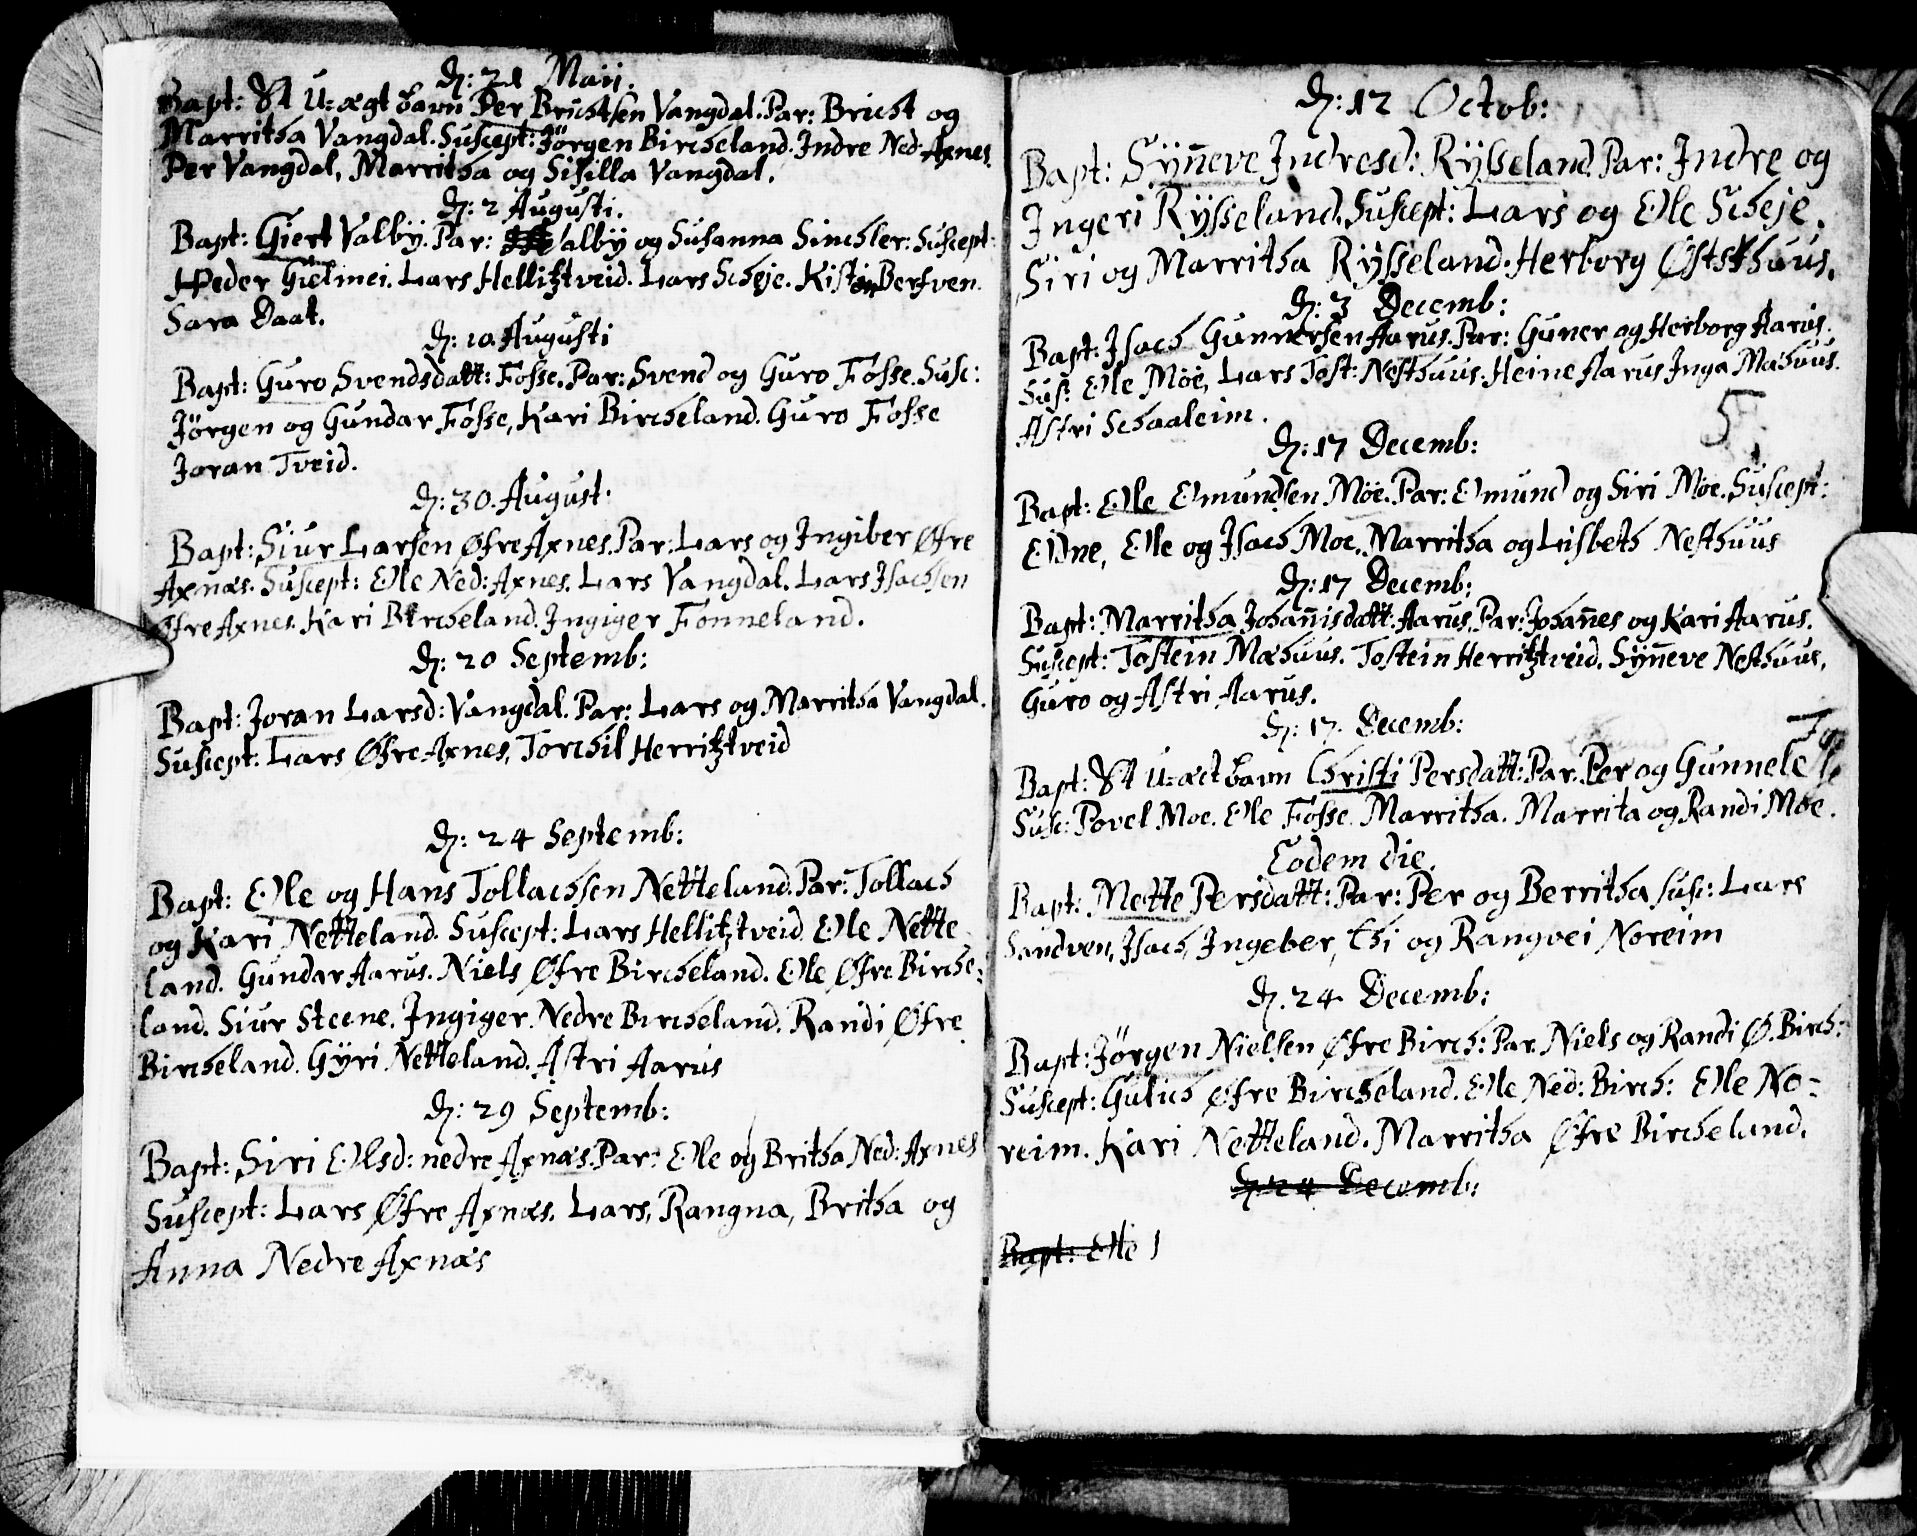 D: 21 Maij.
Bapt: Et U-ægt barn Per Brichtsen Vangdal. Par: Bricht og
Marritha Vangdal. Suscept: Jörgen Bircheland. Indre Ned: Axnes.
Per Vangdal, Marritha og Sisilla Vangdal.
D: 2 Augusti.
Bapt: Giert Valby. Par: Valby og Susanna Sinchler: Suscept:
Peder Gielmei. Lars Hellitztveid. Lars Scheje. Berfven.
Sara Daat.
D: 10 Augusti
Bapt: Guro Svendsdatt: Fosse. Par: Svend og Guro Fosse. Susc:
Jörgen og Gundar Fosse, Kari Bircheland. Guro Fosse
Joran Tveid.
D: 30. August:
Bapt: Siur Larsen Øfre Axnes. Par: Lars og Ingiber Øfre
Axnæs. Suscept: Ole Ned: Axnes. Lars Vangdal. Lars Isachsen
Øfre Axnes. Kari Bircheland. Ingiger Fonneland.
D: 20 Septemb:
Bapt: Joran Larsd: Vangdal. Par: Lars og Marritha Vangdal.
Suscept: Lars Øfre Axnes, Torchil Herritztveid
D: 24 Septemb:
Bapt: Ole og Hans Tollachsen Netteland. Par: Tollach
og Kari Netteland. Suscept: Lars Hellitztveid Ole Nette
land. Gundar Aarus. Niels Øfre Bircheland. Ole Øfre Birche:
land. Siur Steene. Ingiger Nedre Bircheland. Randi Øfre
Bircheland. Gÿri Netteland. Astri Aarus
D: 29 Septemb:
Bapt: Siri Olsd: nedre Axnæs. Par: Ole og Britha Ned: Axnes
Suscept: Lars Øfre Axnæs. Lars, Rangna, Britha og
Anna Nedre Axnæs
D: 12 Octob:
Bapt: Sÿn̄eve Indresd: Rÿsseland. Par: Indre og
Ingeri Rÿsseland. Suscept: Lars og Ole Scheje.
Siri og Marritha Rÿsseland. Herborg Øststhuus.
D: 3 Decemb:
Bapt: Isach Gunnersen Aarus. Par: Guner og Herborg Aarus.
Sus: Ole Möe, Lars Tost: Nesthuus. Heine Aarus Inga Mæhuus.
Astri Schaaleim.
5
D: 17 Decemb:
Bapt: Ole Omundsen Möe. Par: Omund og Siri Moe. Suscept:
Eidne, Ole og Isach Moe. Marritha og Lisbeth Nesthuus
D: 17 Decemb:
Bapt: Marritha Johan̄isdatt: Aarus. Par: Johan̄es og Kari Aarus.
Suscept: Tostein Mæhuus. Tostein Herritztveid. Sÿn̄eve Nesthuus,
Guro og Astri Aarus.
D: 17 Decemb:
Bapt: Et U-æct barn Christi Persdatt: Par: Per og Gunnele
Susc: Povel Moe. Ole Fosse. Marritha. Marrita og Randi Moe.
Eodem die.
Bapt: Mette Persdatt: Par: Per og Berritha Susc: Lars
Sandven, Isach, Ingeber, Chi og Rangvei Noreim
D. 24 Decemb:
Bapt: Jörgen Nielsen Øfre Birch: Par. Niels og Randi Ø. Birch:
Suscept: Gulich Øfre Bircheland. Ole Ned: Birch: Ole No-
reim. Kari Netteland. Marritha Øfre Bircheland.
D: 24 Decemb:
Bapt: Ole I